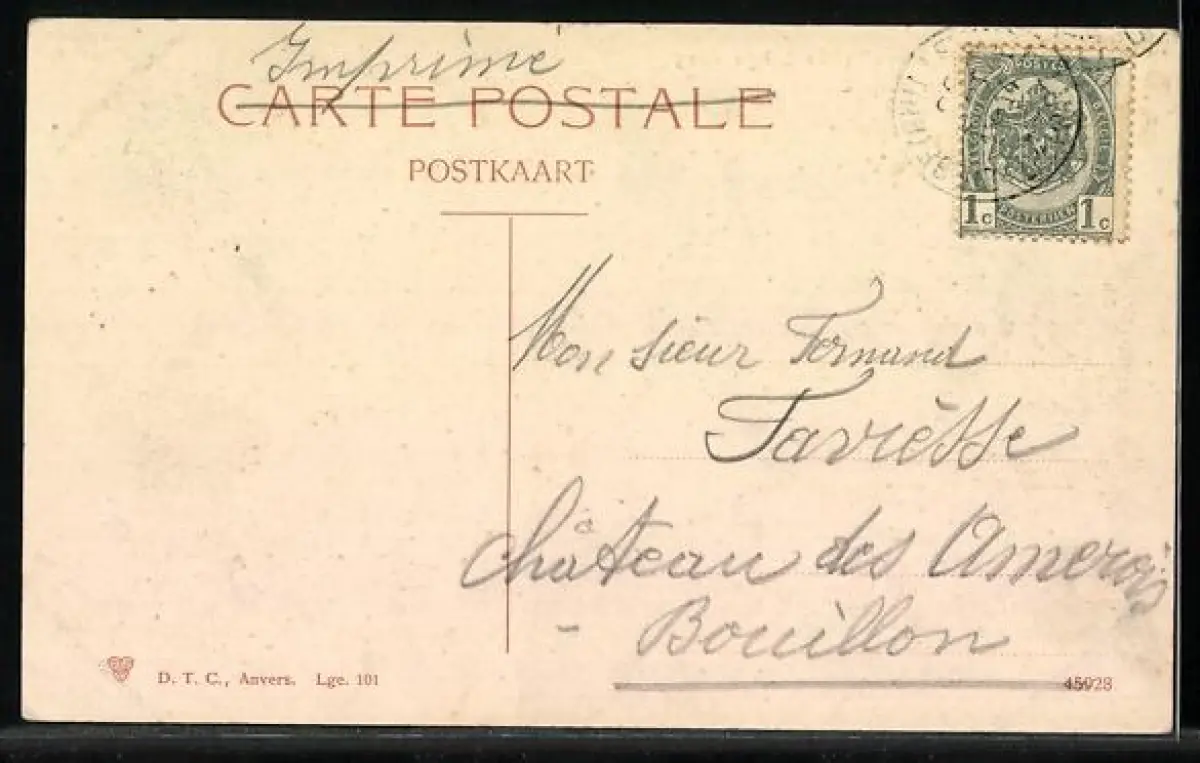 Imprimé
CARTE POSTALE
POSTKAART
1c 1c
Monsieur Fernand
Tavièsse
Château des Amerois
- Bouillon
D. T. C., Anvers. Lge. 101
45928